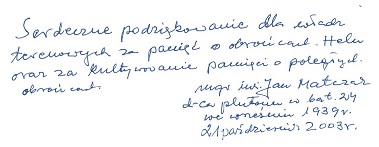 Serdeczne podziękowanie dla władz
terenowych za pamięć o obrońcach Helu
oraz za kultywowanie pamięci o poległych
obrońcach.
mgr inż. Jan Matczak
d-ca plutonu w bat. 24
we wrześniu 1939r.
21 październik 2003r.